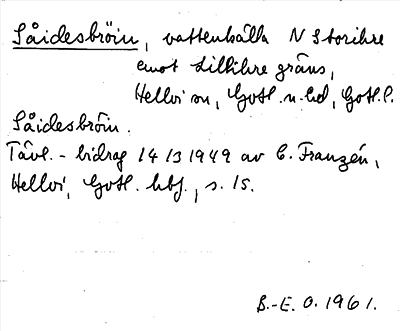 Såidesbröin, vattenkälla N Storihre
emot Lillihre gräns,
Hellvi sn, Gotl. n. hd, Gotl. l.
Såidesbröin.
Tävl.-bidrag 14/3 1949 av E. Franzén,
Hellvi, Gotl. hbf., s. 15.
B.-E. O. 1961.